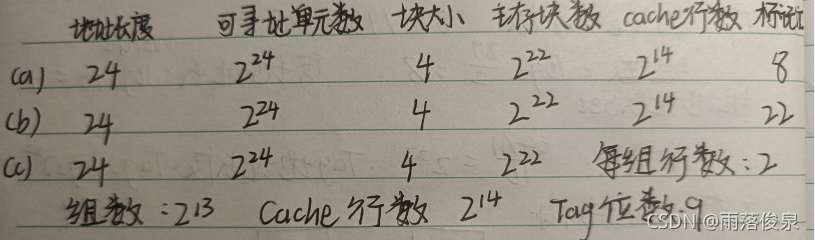 地址长度 可寻址单元数 块大小 主存块数 cache行数 标记
(a) 24 2²⁴ 4 2²² 2¹⁴ 8
(b) 24 2²⁴ 4 2²² 2¹⁴ 22
(c) 24 2²⁴ 4 2²² 每组行数:2
组数:2¹³ Cache行数 2¹⁴ Tag位数:9
CSDN @雨落俊泉